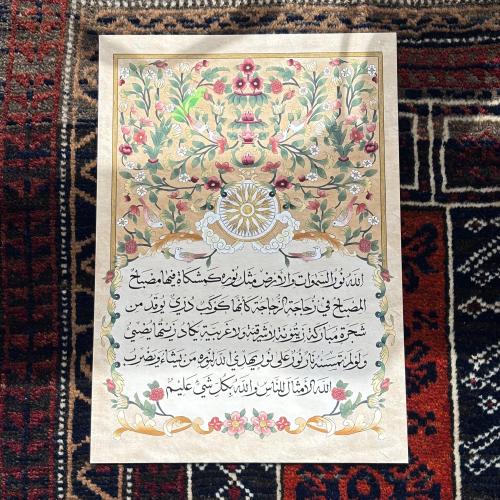 الله نور السموات والأرض مثل نوره كمشكاة فيها مصباح
المصباح في زجاجة الزجاجة كأنها كوكب دري يوقد من
شجرة مباركة زيتونة لا شرقية ولا غربية يكاد زيتها يضيئ
ولو لم تمسسه نار نور على نور يهدي الله لنوره من يشاء ويضرب
الله الأمثال للناس والله بكل شيئ عليم